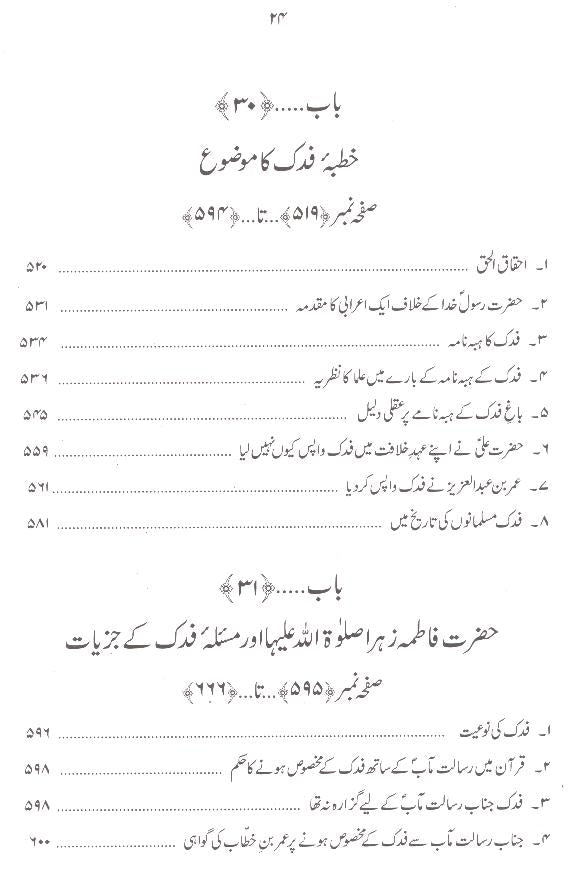 ۲۴
باب.....﴿۳۰﴾
خطبۂ فدک کا موضوع
صفحہ نمبر ﴿۵۱۹﴾...تا...﴿۵۹۴﴾
۱۔ احقاق الحق ........ ۵۲۰
۲۔ حضرت رسولؐ خدا کے خلاف ایک اعرابی کا مقدمہ ........ ۵۳۱
۳۔ فدک کا ہبہ نامہ ........ ۵۳۴
۴۔ فدک کے ہبہ نامہ کے بارے میں علما کا نظریہ ........ ۵۳۶
۵۔ باغِ فدک کے ہبہ نامے پر عقلی دلیل ........ ۵۴۵
۶۔ حضرت علیؑ نے اپنے عہدِ خلافت میں فدک واپس کیوں نہیں لیا ........ ۵۵۹
۷۔ عمر بن عبدالعزیز نے فدک واپس کر دیا ........ ۵۶۱
۸۔ فدک مسلمانوں کی تاریخ میں ........ ۵۸۱
باب.....﴿۳۱﴾
حضرت فاطمہ زہرا صلوٰۃ اللہ علیہا اور مسئلۂ فدک کے جزیات
صفحہ نمبر ﴿۵۹۵﴾...تا...﴿۶۶۶﴾
۱۔ فدک کی نوعیت ........ ۵۹۶
۲۔ قرآن میں رسالت مآبؐ کے ساتھ فدک کے مخصوص ہونے کا حکم ........ ۵۹۸
۳۔ فدک جناب رسالت مآبؐ کے لیے گزارہ نہ تھا ........ ۵۹۸
۴۔ جناب رسالت مآب سے فدک کے مخصوص ہونے پر عمر بن خطّاب کی گواہی ........ ۶۰۰